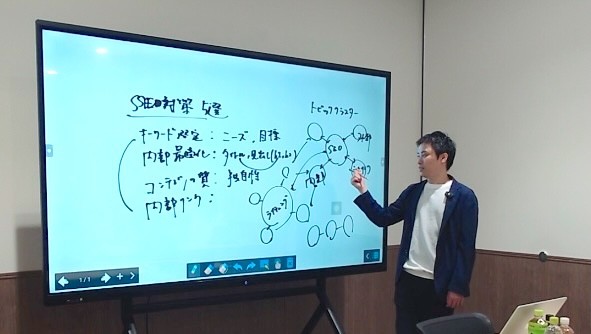 SEO対策
キーワード選定：ニーズ、目標
内部最適化：タイトル、見出し(h2,h3)
コンテンツの質：独自性
内部リンク：
トピッククラスター
SEO
外部
内部
ライティング
1/1